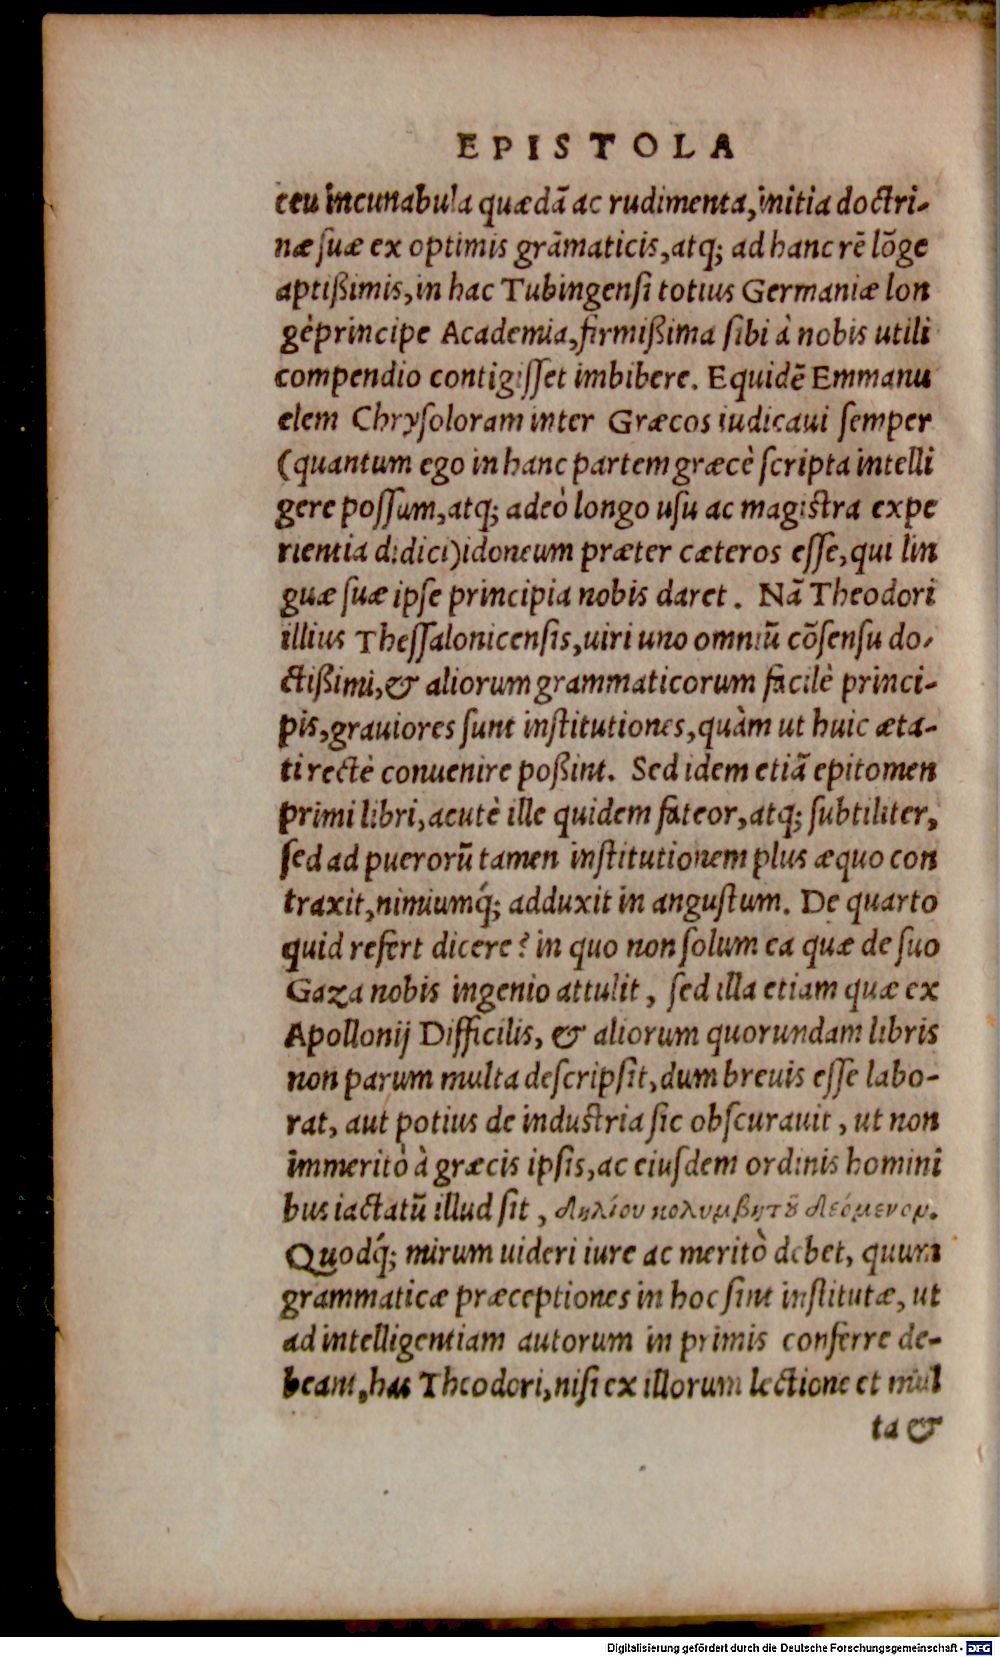 EPISTOLA
ceu incunabula quædã ac rudimenta, initia doctri-
næ ſuæ ex optimis grãmaticis, atq; ad hanc rẽ lõge
aptißimis, in hac Tubingenſi totius Germaniæ lon
gèprincipe Academia, firmißima ſibi à nobis utili
compendio contigiſſet imbibere. Equidẽ Emmanu
elem Chryſoloram inter Græcos iudicaui ſemper
(quantum ego in hanc partem græcè ſcripta intelli
gere poſſum, atq; adeò longo uſu ac magiſtra expe
rientia didici) idoneum præter cæteros eſſe, qui lin
guæ ſuæ ipſe principia nobis daret. Nã Theodori
illius Theſſalonicenſis, uiri uno omniũ cõſenſu do-
ctißimi, & aliorum grammaticorum facilè princi-
pis, grauiores ſunt inſtitutiones, quàm ut huic æta-
ti rectè conuenire poßint. Sed idem etiã epitomen
primi libri, acutè ille quidem fateor, atq; ſubtiliter,
ſed ad puerorũ tamen inſtitutionem plus æquo con
traxit, nimiumq́; adduxit in anguſtum. De quarto
quid refert dicere? in quo non ſolum ea quæ de ſuo
Gaza nobis ingenio attulit, ſed illa etiam quæ ex
Apollonij Difficilis, & aliorum quorundam libris
non parum multa deſcripſit, dum breuis eſſe labo-
rat, aut potius de induſtria ſic obſcurauit, ut non
immeritò à græcis ipſis, ac eiuſdem ordinis homini
bus iactatũ illud ſit, δηλίου κολυμβητοῦ δεόμενον.
Quodq́; mirum uideri iure ac meritò debet, quum
grammaticæ præceptiones in hoc ſint inſtitutæ, ut
ad intelligentiam autorum in primis conferre de-
beant, has Theodori, niſi ex illorum lectione et mul
ta &
Digitalisierung gefördert durch die Deutsche Forschungsgemeinschaft - DFG